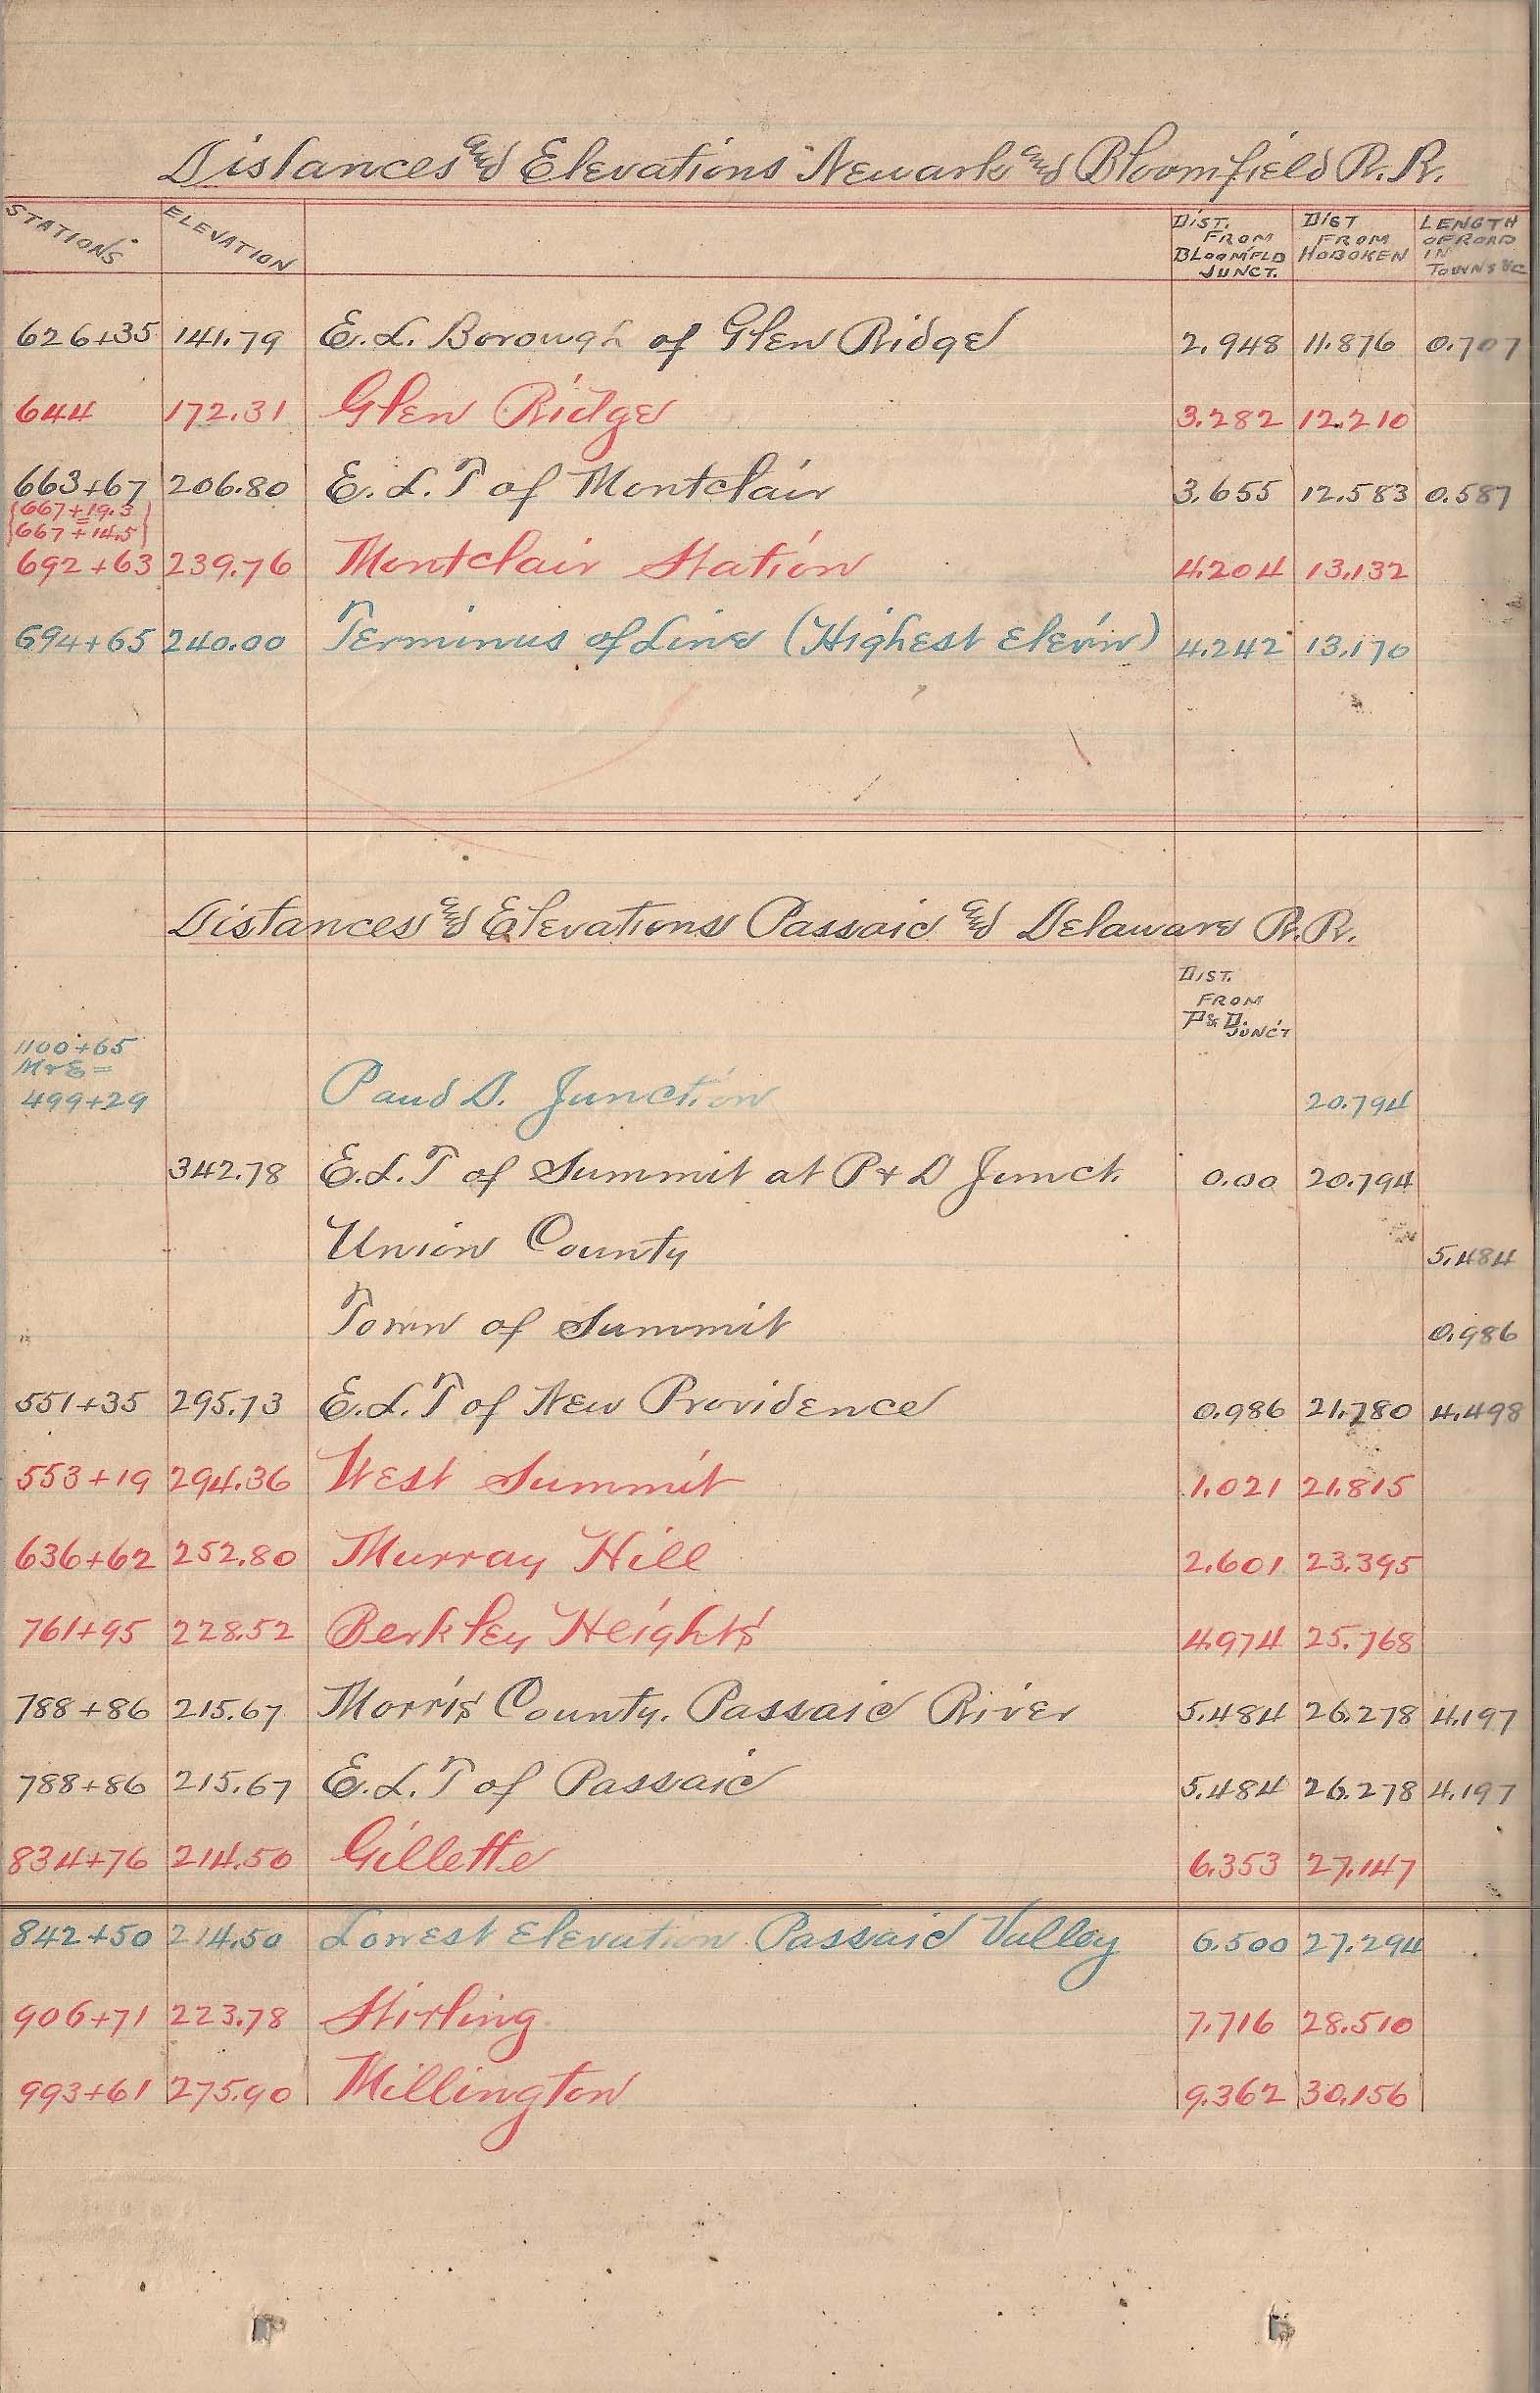 Distances and Elevations Newark and Bloomfield R.R.
STATIONS ELEVATION DIST. FROM BLOOMFLD JUNCT. DIST FROM HOBOKEN LENGTH OF ROAD IN TOWNS &C
626+35 141.79 E.L. Borough of Glen Ridge 2.948 11.876 0.707
644 172.31 Glen Ridge 3.282 12.210
663+67 206.80 E.L.T of Montclair 3.655 12.583 0.587
{667+19.5}
=
{667+14.5}
692+63 239.76 Montclair Station 4.204 13.132
694+65 240.00 Terminus of Line (Highest Elev'n) 4.242 13.170
Distances and Elevations Passaic and Delaware R.R.
DIST. FROM P&D. JUNC'T
1100+65
M&E =
499+29 P and D. Junction 20.794
342.78 E.L.T of Summit at P & D Junct. 0.00 20.794
Union County 5.484
Town of Summit 0.986
551+35 295.73 E.L.T of New Providence 0.986 21.780 4.498
553+19 294.36 West Summit 1.021 21.815
636+62 252.80 Murray Hill 2.601 23.395
761+95 228.52 Berkley Heights 4.974 25.768
788+86 215.67 Morris County. Passaic River 5.484 26.278 4.197
788+86 215.67 E.L.T of Passaic 5.484 26.278 4.197
834+76 214.50 Gillette 6.353 27.147
842+50 214.50 Lowest Elevation Passaic Valley 6.500 27.294
906+71 223.78 Stirling 7.716 28.510
993+61 275.90 Millington 9.362 30.156